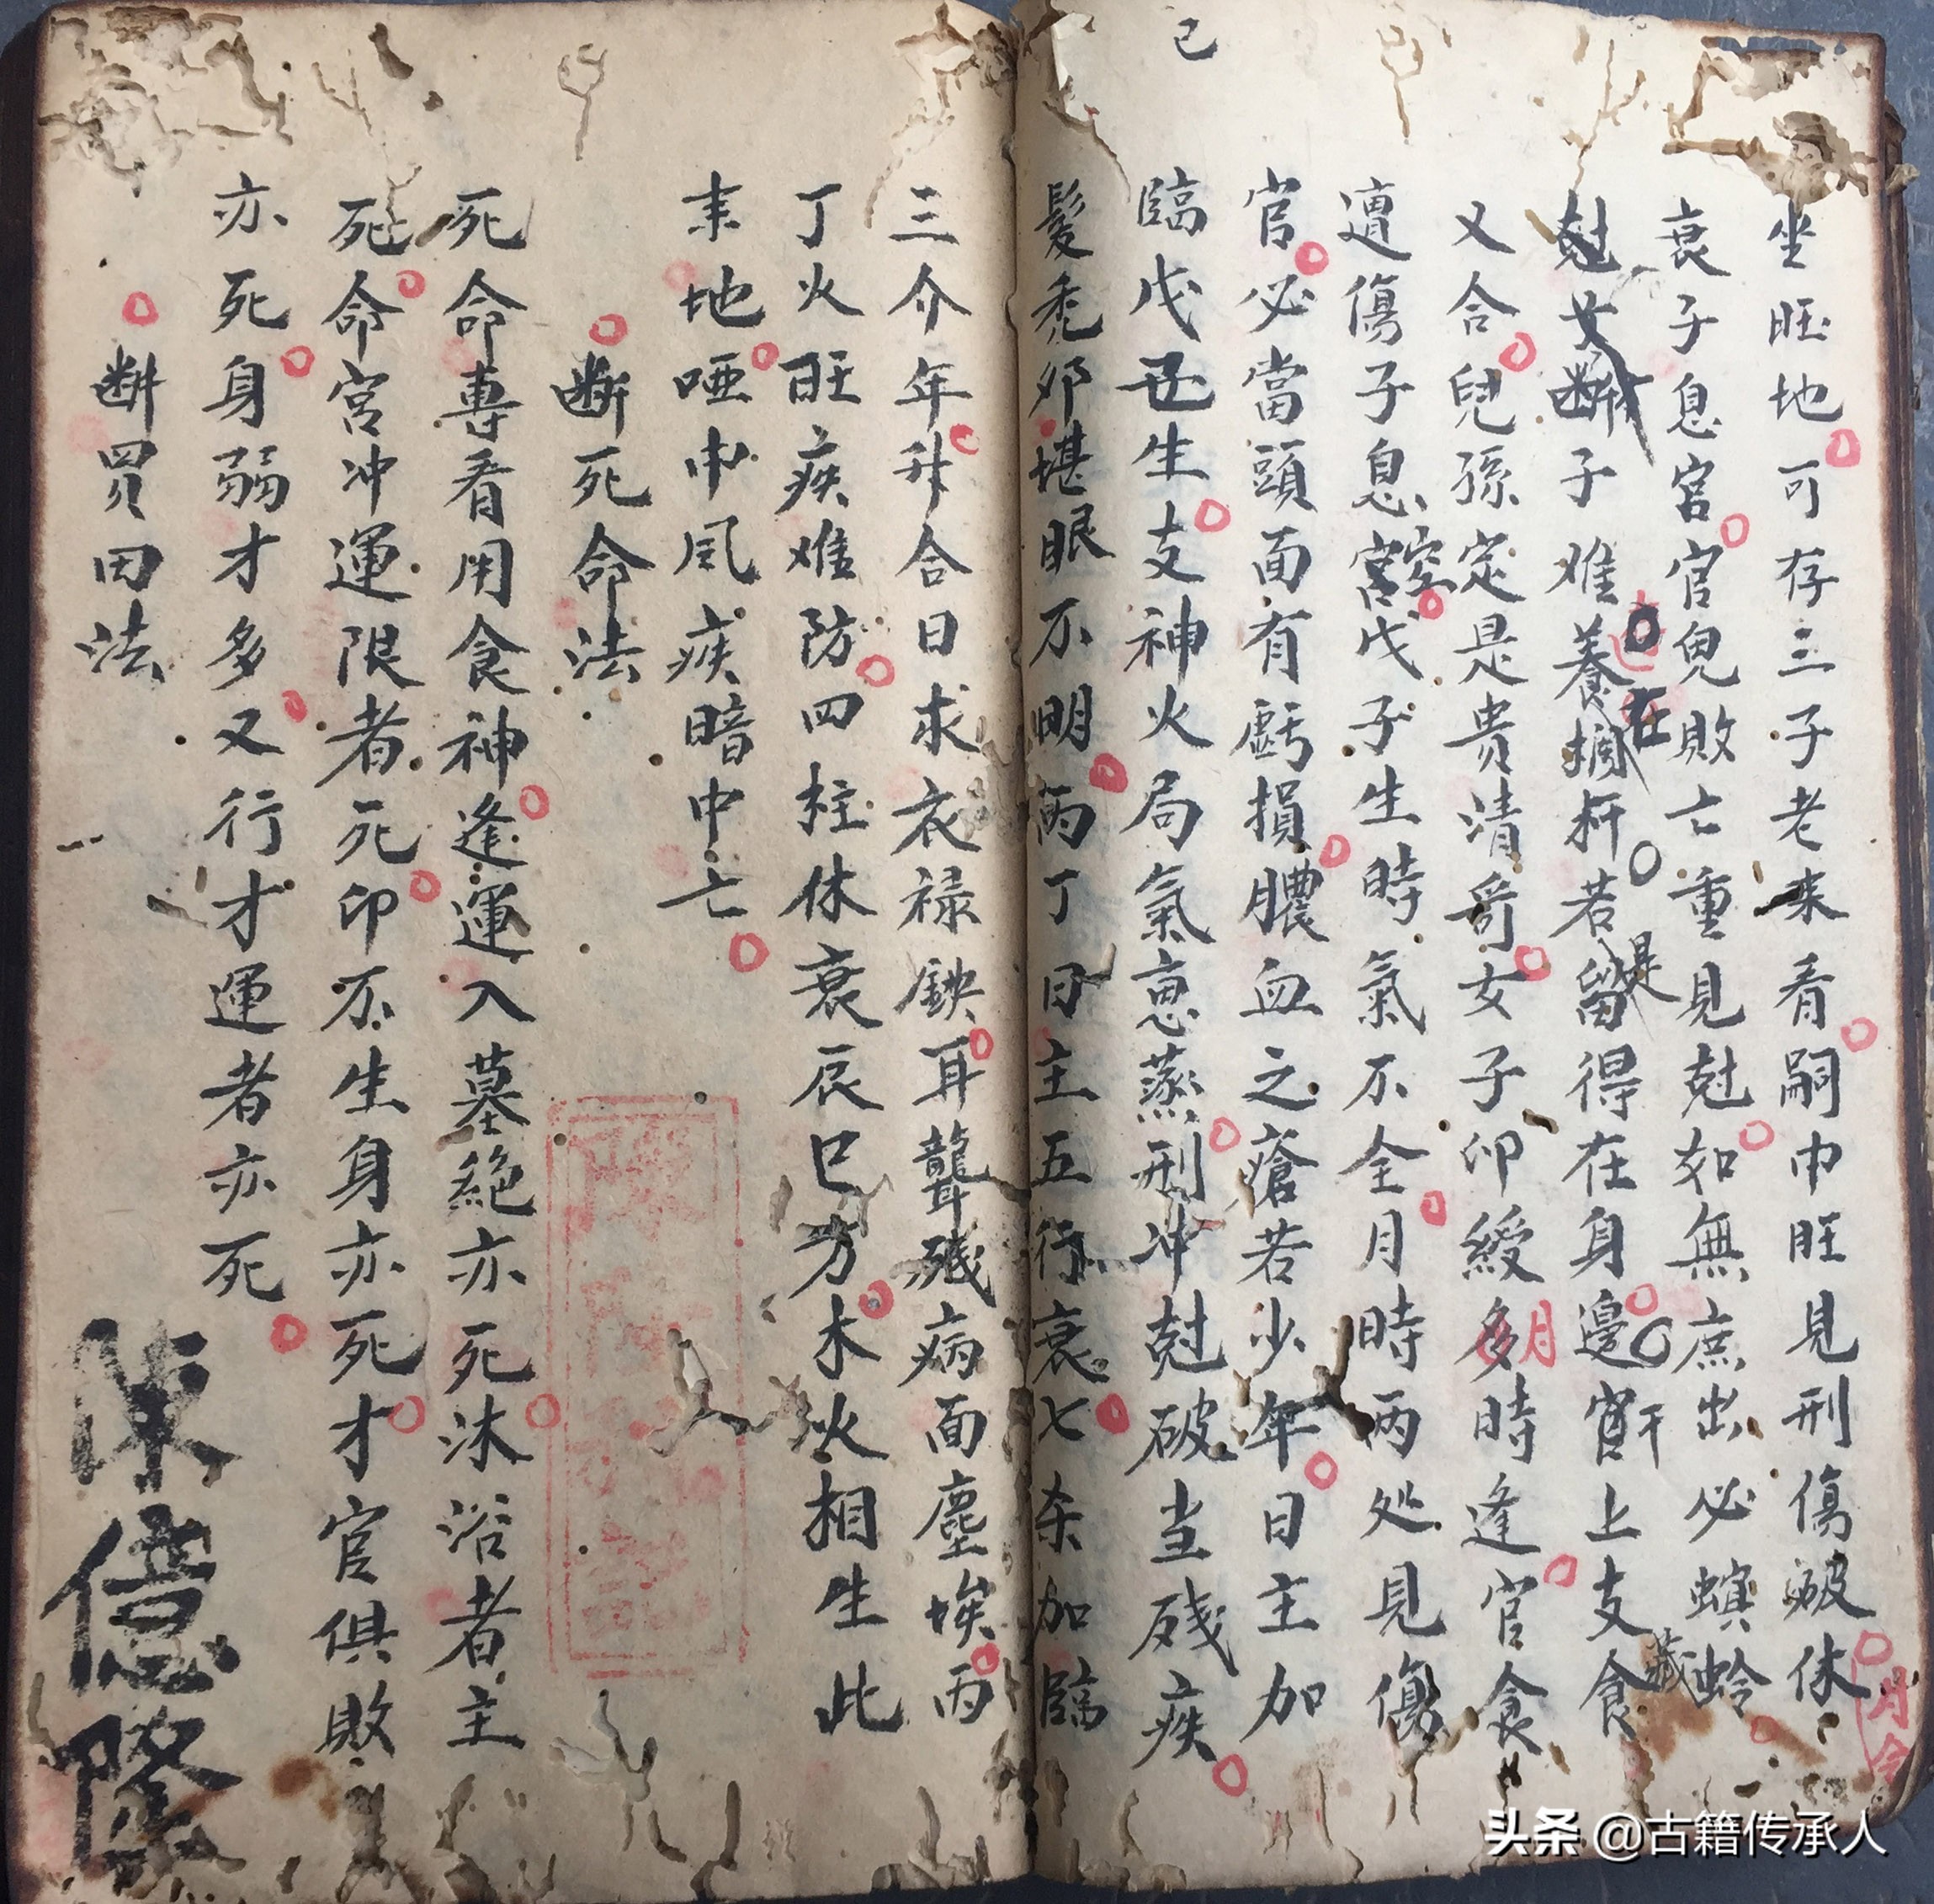 坐旺地可存三子老来看嗣巾旺見刑傷破休
月令
衰子息宫官鬼敗亡重見尅如無庶出必螟蛉
尅女断子难養 杆若留得在身邊官上支食
在
是
干
藏
又合兒孫定是贵清奇女子印綬多時逢官食
月
遭傷子息宫戊子生時氣不全月時两处見傷
空
官必當頭面有虧損膿血之瘡若少年日主加
臨戊己生支神火局氣恵蒸刑冲尅破当残疾
己
髮禿邜堪眼不明丙丁日主五行衰七杀加臨
三介年升合日求衣禄鉄耳聾残病面塵埃丙
丁火旺疾难防四柱休衰辰巳方木火相生此
来地哑中風疾暗中亡
断死命法
死命專看用食神逢運入墓絶亦死沐浴者主
死命宫冲運限者死印不生身亦死才官俱敗
亦死身弱才多又行才運者亦死
断買田法
陳億隆
头条 @古籍传承人